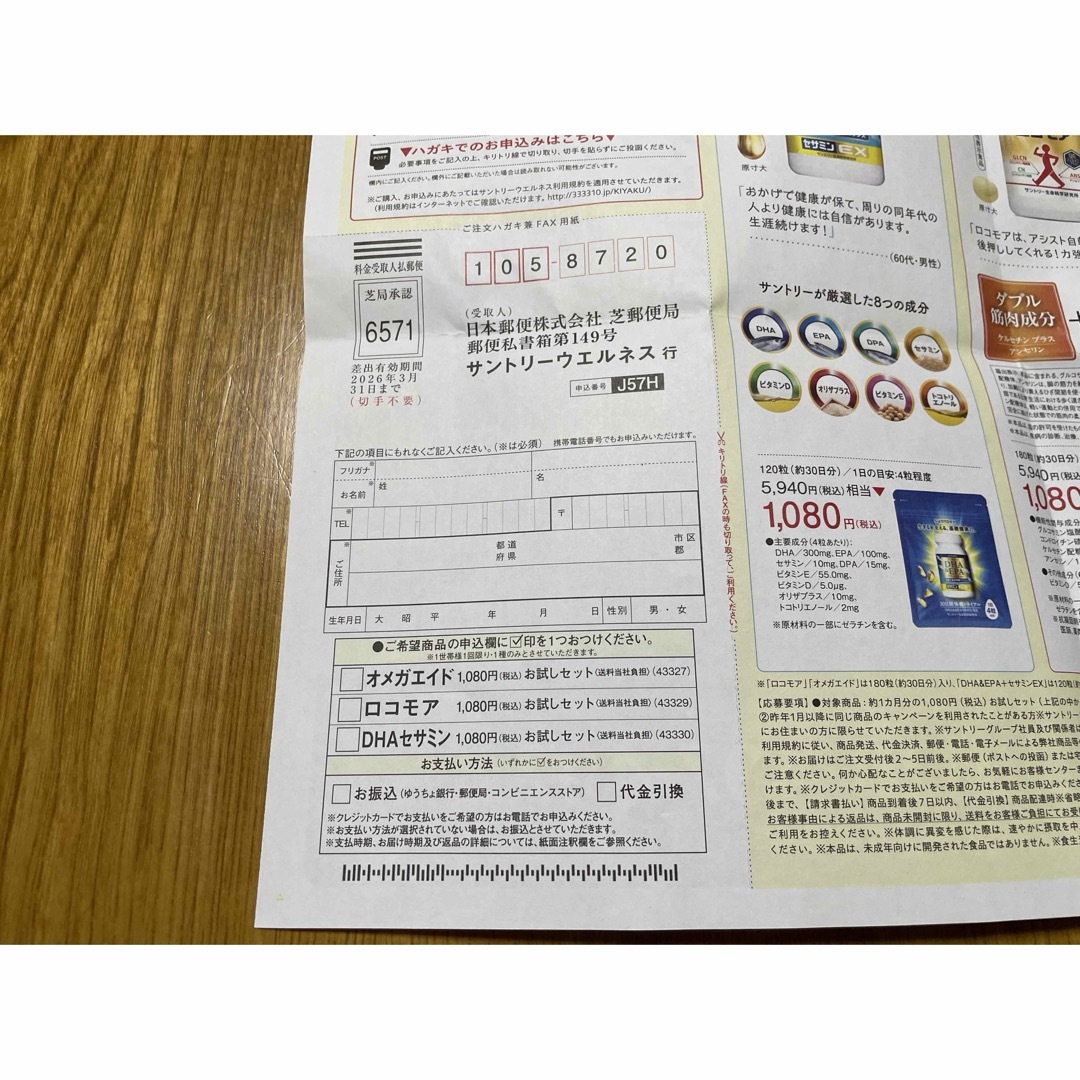 ▼ハガキでのお申込みはこちら▼
POST
必要事項をご記入の上、キリトリ線で切り取り、切手を貼らずにご投函ください。
欄内にご記入ください。欄外にご記載いただいた場合は読み取れない可能性がございます。
※ご購入、お申込みにあたってはサントリーウエルネス利用規約を適用させていただきます。
(利用規約はインターネットでご確認いただけます。http://333310.jp/KIYAKU/)
ご注文ハガキ兼FAX用紙
料金受取人払郵便
芝局承認
6571
差出有効期間
2026年3月
31日まで
(切手不要)
105-8720
(受取人)
日本郵便株式会社 芝郵便局
郵便私書箱第149号
サントリーウエルネス 行
申込番号 J57H
下記の項目にもれなくご記入ください。(※は必須) 携帯電話番号でもお申込みいただけます。
フリガナ※
お名前※ 姓 名
※TEL 〒
※ご住所 都道府県 市区郡
生年月日 大 昭 平 年 月 日 性別 男・女
●ご希望商品の申込欄に☑印を1つおつけください。
※1世帯様1回限り・1種のみとさせていただきます。
オメガエイド 1,080円(税込) お試しセット(送料当社負担)(43327)
ロコモア 1,080円(税込) お試しセット(送料当社負担)(43329)
DHAセサミン 1,080円(税込) お試しセット(送料当社負担)(43330)
お支払い方法(いずれかに☑をおつけください)
お振込(ゆうちょ銀行・郵便局・コンビニエンスストア) 代金引換
※クレジットカードでお支払いをご希望の方はお電話でお申込みください。
※お支払い方法が選択されていない場合は、お振込とさせていただきます。
※支払時期、お届け時期及び返品の詳細については、紙面注釈欄をご参照ください。
キリトリ線(FAXの時も切り取って、ご利用ください。)
セサミンEX
原寸大
「おかげで健康が保て、周りの同年代の
人より健康には自信があります。
生涯続けます!」
(60代・男性)
サントリーが厳選した8つの成分
DHA
EPA
DPA
セサミン
ビタミンD
オリザプラス
ビタミンE
トコトリエノール
120粒(約30日分)/1日の目安:4粒程度
5,940円(税込)相当▼
1,080円(税込)
●主要成分(4粒あたり):
DHA/300mg、EPA/100mg、
セサミン/10mg、DPA/15mg、
ビタミンE/55.0mg、
ビタミンD/5.0μg、
オリザプラス/10mg、
トコトリエノール/2mg
※原材料の一部にゼラチンを含む。
GLCN
原寸大
「ロコモアは、アシスト自
後押ししてくれる!力強
ダブル
筋肉成分
ケルセチン プラス
アンセリン
180粒(約30日分)
5,940円
1,080
※「ロコモア」「オメガエイド」は180粒(約30日分)入り、「DHA&EPA+セサミンEX」は120粒(約
【応募要項】●対象商品:約1カ月分の1,080円(税込)お試しセット(上記の中か
②昨年1月以降に同じ商品のキャンペーンを利用されたことがある方※サントリー
にお住まいの方に限らせていただきます。※サントリーグループ社員及び関係者は
利用規約に従い、商品発送、代金決済、郵便・電話・電子メールによる弊社商品等
ます。※お届けはご注文受付後2〜5日前後。※郵便(ポストへの投函)または宅
ご注意ください。何か心配なことがございましたら、お気軽にお客様センター
けます。※クレジットカードでお支払いをご希望の方はお電話でお申込みくださ
後まで、【請求書払い】商品到着後7日以内、【代金引換】商品配達時※省略
お客様事由による返品は、商品未開封に限り、送料をお客様ご負担にてお受
ご利用をお控えください。※体調に異変を感じた際は、速やかに摂取を中
ください。※本品は、未成年向けに開発された食品ではありません。※食生